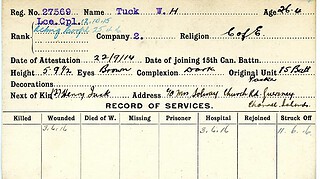 Reg. No. 27569 Name Tuck W. H Age 26.4
Rank Lce. Cpl. Company 2. Religion C of E.
Date of Attestation 22/9/14 Date of Joining 15th Can. Battn.
Height 5-9½ Eyes Brown Complexion Dark Original Unit 15 Batt
Decorations
Next of Kin Henry Tuck Address Church Rd. Guernsey
Channel Islands
RECORD OF SERVICES.
Killed Wounded Died of W. Missing Prisoner Hospital Rejoined Struck Off
3.6.16 3.6.16 11.6.16